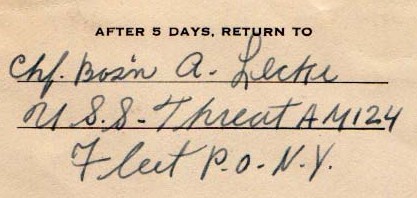 AFTER 5 DAYS, RETURN TO
Chf. Bos'n A. Lecke
U.S.S. Threat AM124
Fleet P.O. N.Y.